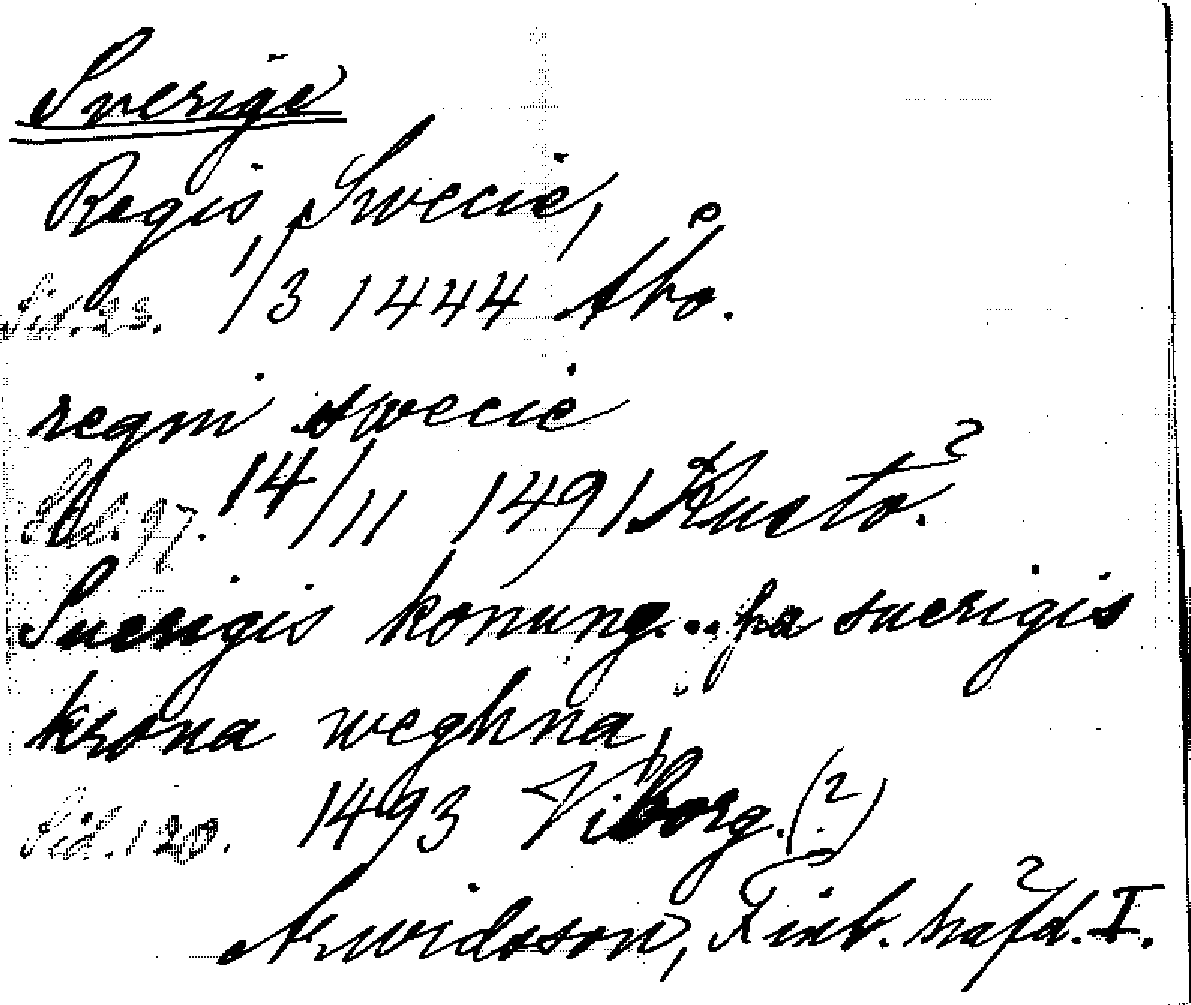 Sverige
Regis Swecie,
Sid. 23. 1/3 1444 Åbo.
regni swecie
Sid. 97. 14/11 1491 Kustö.
Suerigis konung... pa suerigis
krona weghna
Sid. 120. 1493 Viborg. (?)
Arwidsson, Finl. häfd. I.